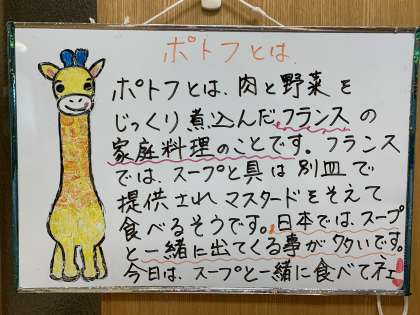 ポトフとは、
ポトフとは、肉と野菜を
じっくり煮込んだフランスの
家庭料理のことです。フランス
では、スープと具は別皿で
提供されマスタードをそえて
食べるそうです。日本では、スープ
と一緒に出てくる事が多いです。
今日は、スープと一緒に食べてネ